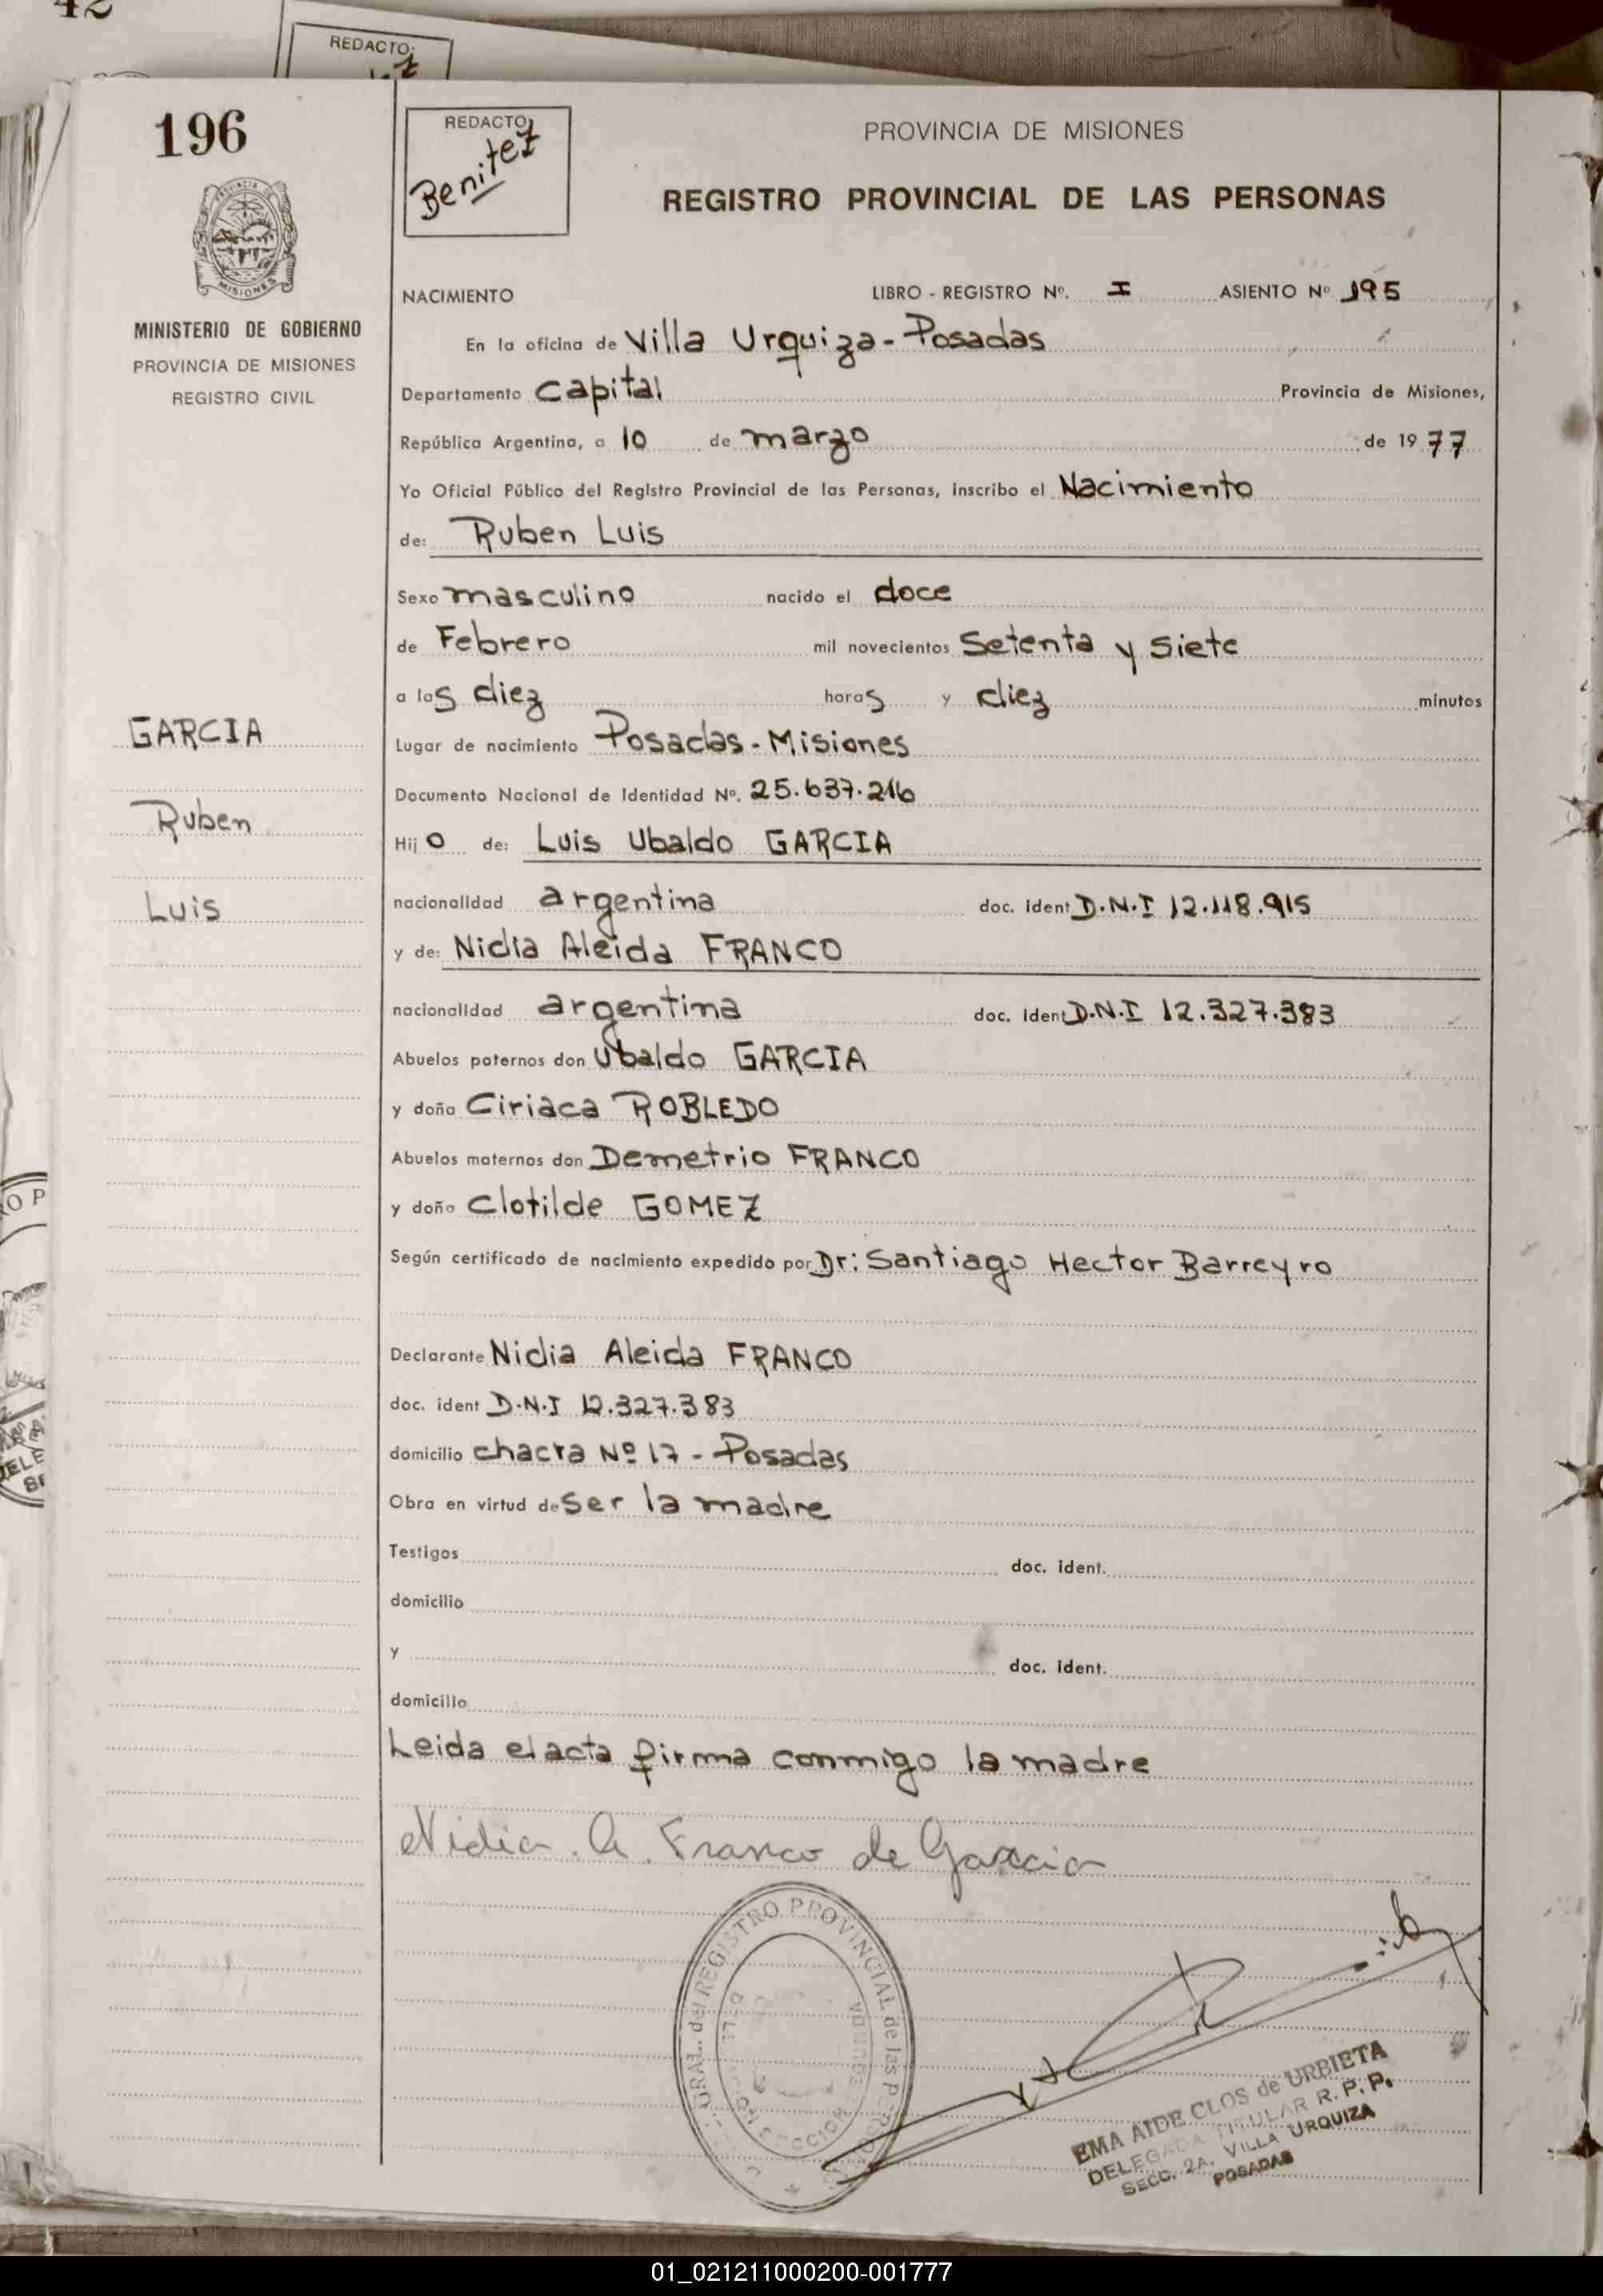 42
REDACTO:
196
REDACTO:
Benitez
PROVINCIA DE MISIONES
REGISTRO PROVINCIAL DE LAS PERSONAS
MISIONES
MINISTERIO DE GOBIERNO
PROVINCIA DE MISIONES
REGISTRO CIVIL
NACIMIENTO LIBRO - REGISTRO Nº. I ASIENTO Nº 195
En la oficina de Villa Urquiza - Posadas
Departamento Capital Provincia de Misiones,
República Argentina, a 10 de marzo de 1977
Yo Oficial Público del Registro Provincial de las Personas, inscribo el Nacimiento
de: Ruben Luis
Sexo masculino nacido el doce
de Febrero mil novecientos Setenta y Siete
a las diez horas y diez minutos
Lugar de nacimiento Posadas - Misiones
Documento Nacional de Identidad Nº. 25.637.216
Hijo de: Luis Ubaldo GARCIA
nacionalidad argentina doc. ident D.N.I 12.118.915
y de: Nidia Aleida FRANCO
nacionalidad argentina doc. ident D.N.I 12.327.383
Abuelos paternos don Ubaldo GARCIA
y doña Ciriaca ROBLEDO
Abuelos maternos don Demetrio FRANCO
y doña Clotilde GOMEZ
Según certificado de nacimiento expedido por Dr: Santiago Hector Barreyro
Declarante Nidia Aleida FRANCO
doc. ident D.N.I 12.327.383
domicilio chacra Nº 17 - Posadas
Obra en virtud de ser la madre
Testigos doc. ident.
domicilio
y doc. ident.
domicilio
Leida el acta firma conmigo la madre
Nidia. A. Franco de Garcia
GARCIA
Ruben
Luis
GRAL. del REGISTRO PROVINCIAL de las PERSONAS
SECCION SEGUNDA
EMA AIDE CLOS de URBIETA
DELEGADA TITULAR R. P. P.
SECC. 2A. VILLA URQUIZA
POSADAS
01_021211000200-001777